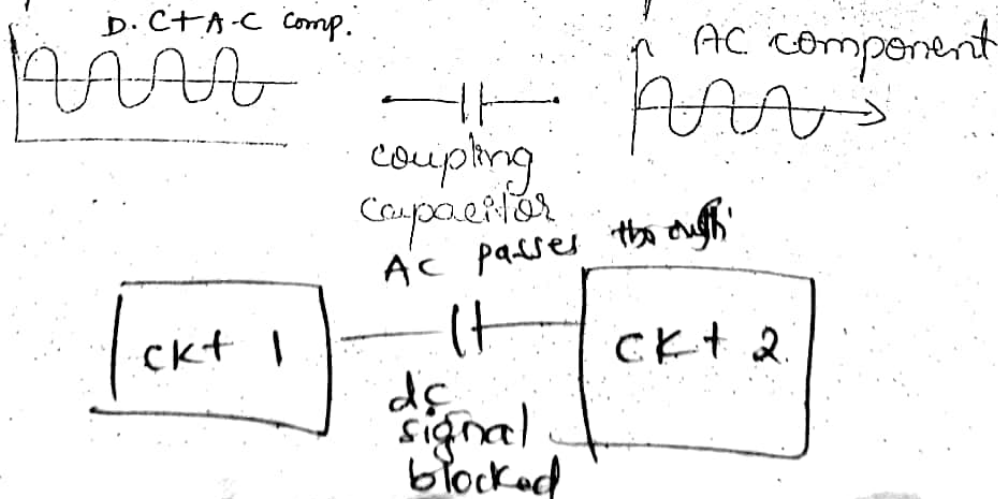 D.C+A-C comp.
AC component
coupling
capacitor
AC passes through
CKt 1
CKt 2.
dc
signal
blocked